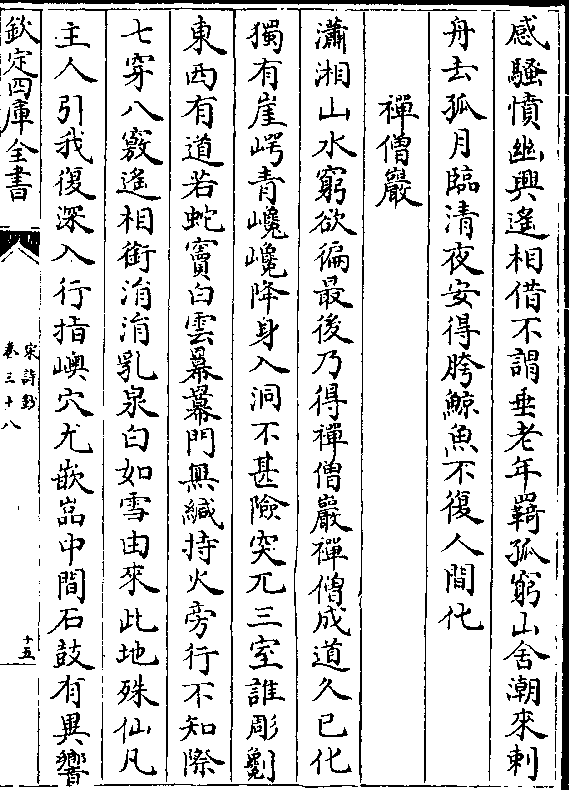 感騷憤幽興遙相借不謂垂老年羇孤窮山舍潮來刺
舟去孤月臨清夜安得跨鯨魚不復人間化
禪僧巖
瀟湘山水窮欲徧最後乃得禪僧巖禪僧成道久已化
獨有崖崿青巉巉降身入洞不甚險突兀三室誰彫劖
東西有道若蛇竇白雲羃羃門無緘持火旁行不知際
七穿八竅遙相銜涓涓乳泉白如雪由來此地殊仙凡
主人引我復深入行指嶼穴尤嵌嵓中間石鼓有異響
欽定四庫全書
宋詩鈔
卷三十八
十五